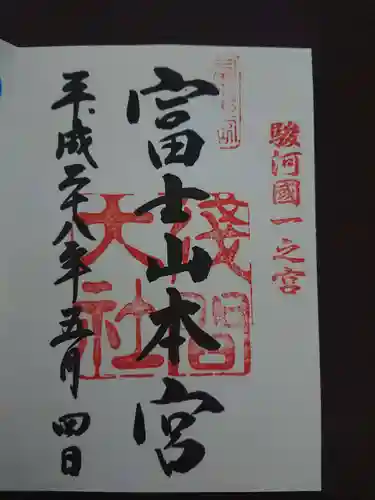 駿河國一之宮
富士山本宮
浅間大社
平成二十八年五月四日